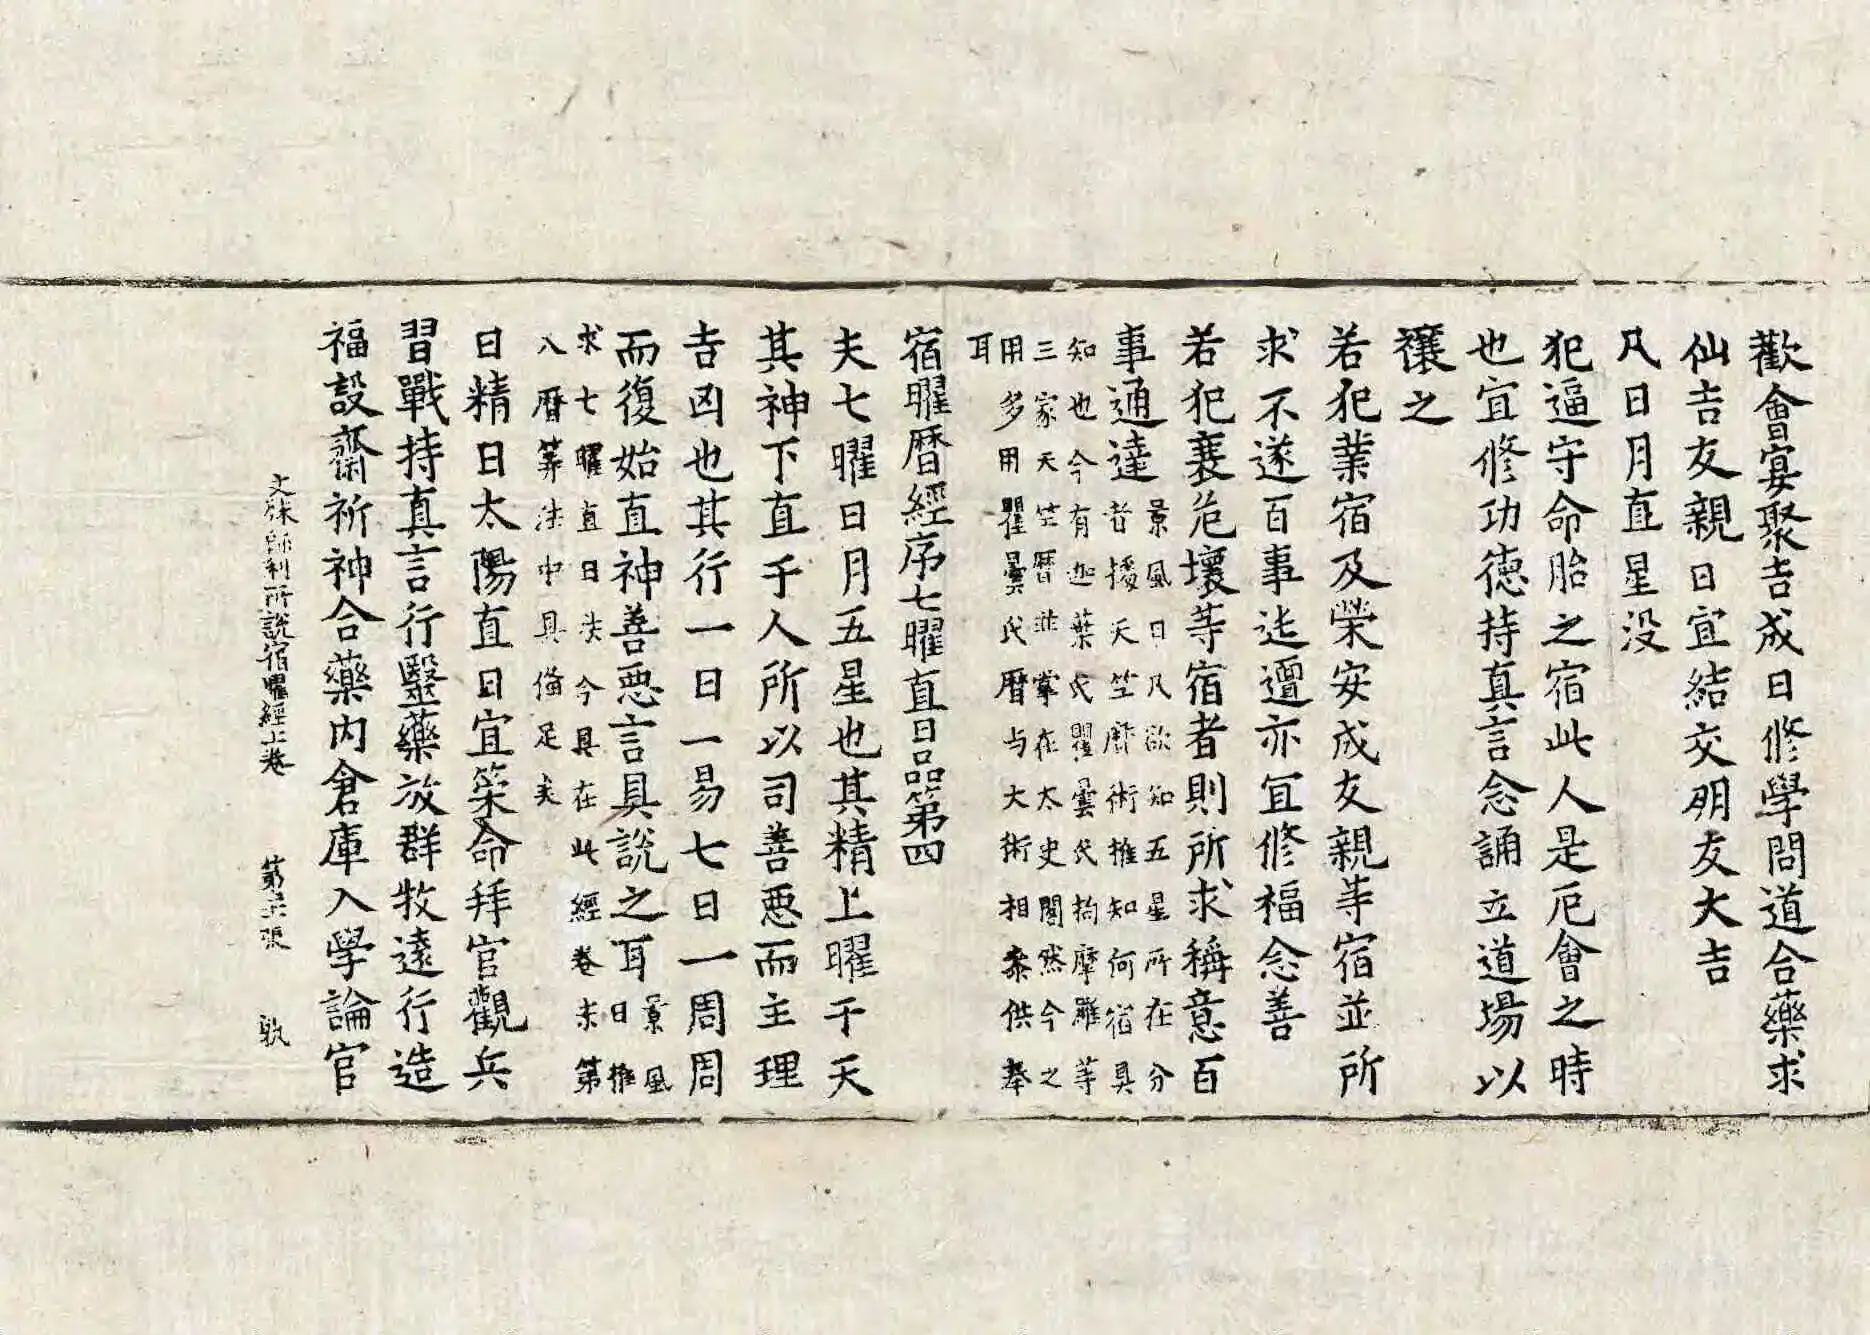 歡會宴聚吉成日修學問道合藥求
仙吉友親日宜結交朋友大吉
凡日月直星没
犯逼守命胎之宿此人是厄會之時
也宜修功德持真言念誦立道場以
禳之
若犯業宿及榮安成友親等宿並所
求不遂百事迍邅亦宜修福念善
若犯衰危壞等宿者則所求稱意百
事通達
景風日凡欲知五星所在分
者據天竺曆術推知何宿具
知也今有迦葉氏瞿曇氏拘摩羅等
三家天竺曆並掌在太史閣然今之
用多用瞿曇氏曆与大術相叅供奉
耳
宿曜曆經序七曜直日品第四
夫七曜日月五星也其精上曜于天
其神下直于人所以司善惡而主理
吉凶也其行一日一易七日一周周
而復始直神善惡言具說之耳
景風
日推
求七曜直日法今具在此經卷末第
八曆筭法中具俻足矣
日精日太陽直日宜䇿命拜官觀兵
習戰持真言行醫藥放群牧遠行造
福設齋祈神合藥内倉庫入學論官
文殊師利所說宿曜經上卷 第 張